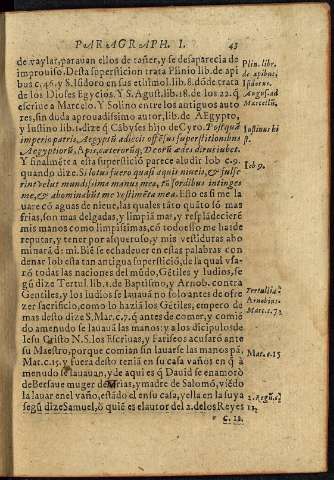 PARAGRAPH. I. 43
de vaylar, parauan ellos de tañer, y se desaparecia de
improuiso. Desta superstiçion trata Plinio lib. de abi
bus c. 46. y S. Isidoro en sus etismol. lib. 8. dõde trata
de los Dioses Egycios. Y S. Agust. lib. 18. de los 22. q̃
escriue a Marcelo. Y Solino entre los antiguos auto
res, sin duda aprouadissimo autor, lib. de AEgypto,
y Iustino lib. 1. dize q̃ Cãbyses hijo de Cyro. Postquã
imperio patris, Aegyptũ adiecit offẽsus superstitionibus
Aegyptiorũ, Apis, cæterorũq; Deorũ ædes dirui iubet.
Y finalmẽte a esta superstició parece aludir Iob c. 9.
quando dize. Si lotus fuero quasi aquis niueis, & fulse
rint velut mundissima manus mea, tũ sordibus intinges
me, & abominabũt me vestimẽta mea. Esto es si me la
uare cõ aguas de nieue, las quales tãto quãto sõ mas
frias, son mas delgadas, y limpiã mas, y resplãdecierẽ
mis manos como limpissimas, cõ todo esso me has de
reputar, y tener por asqueroso, y mis vestiduras abo
minarã de mi. Biẽ se echa de uer en estas palabras con
denar Iob esta tan antigua superstició, de la qual vsa-
rõ todas las naciones del mũdo, Gẽtiles y Iudios, se-
gũ dize Tertul lib. 1. de Baptismo, y Arnob. contra
Gentiles, y los Iudios se lauauã no solo antes de ofre
zer sacrificio, como lo haziã los Gẽtiles, empero de
mas desto dize S. Mar. c. 7. q̃ antes de comer, y comié
do amenudo se lauauã las manos: y a los dicipulos de
Iesu Cristo N. S. los Escriuas, y Fariseos acusarõ ante
su Maestro, porque comian sin lauarse las manos pã.
Mat. c. 15. y fuera desto teniã en su casa vaños en q̃ a
menudo se lauauan, y de aqui es q̃ Dauid se enamorò
de Bersaue muger de Vrias, y madre de Salomõ, viẽdo
la lauar en el vaño, estãdo el en su casa, y ella en la suya
segũ dize Samuel, ò quiẽ es el autor del 2. de los Reyes
c. 12.
Plin. libr.
de apibus,
Isidorus.
August. ad
Marcellũ.
Iustinus hi
st.
Iob 9.
Arnobius.
Marc. 1. 7.
Mat. c. 15